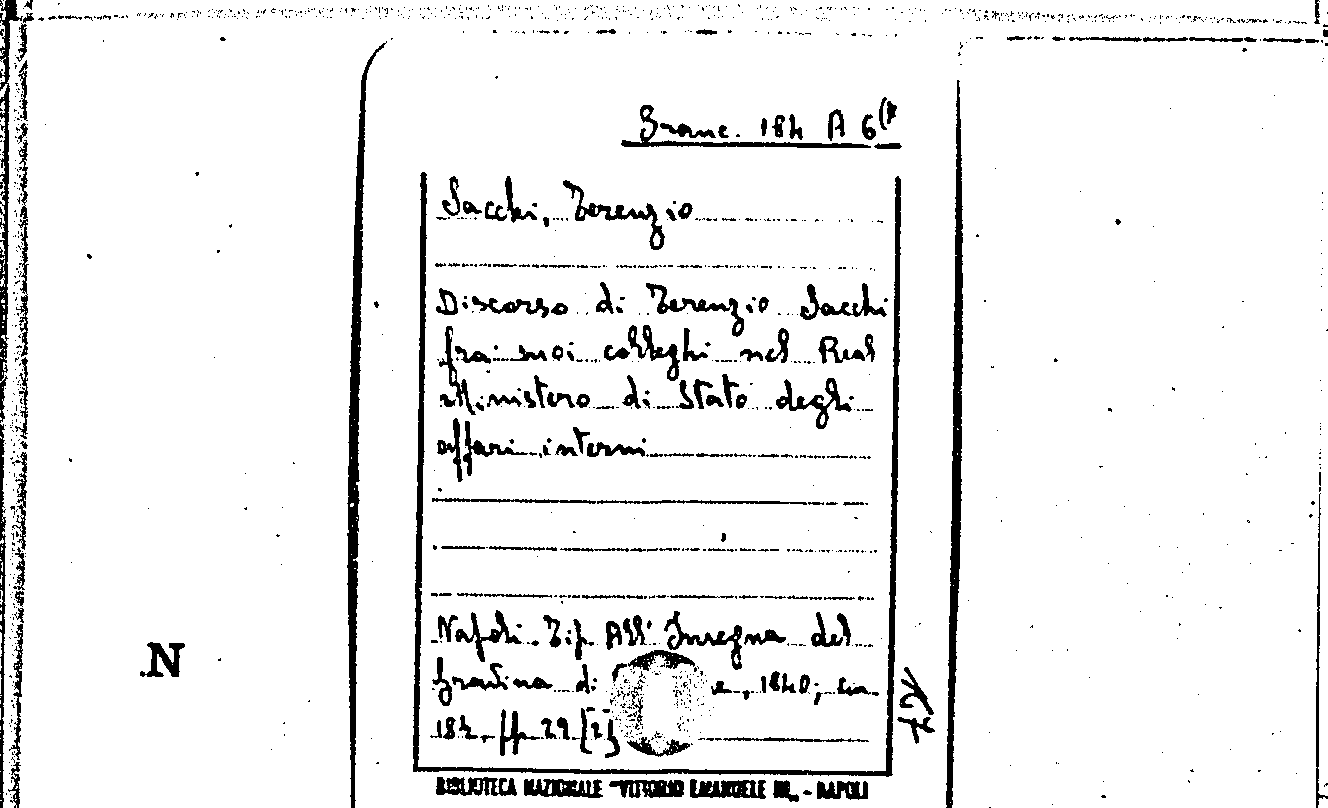 Branc. 184 A 6(
Sacchi, Terenzio
Discorso di Terenzio Sacchi
fra i suoi colleghi nel Real
Ministero di Stato degli
affari interni
Napoli. Tip. All' Insegna del
Gravina di e, 1840; cm.
184. pp. 29 [2]
N
BIBLIOTECA NAZIONALE "VITTORIO EMANUELE III„ - NAPOLI